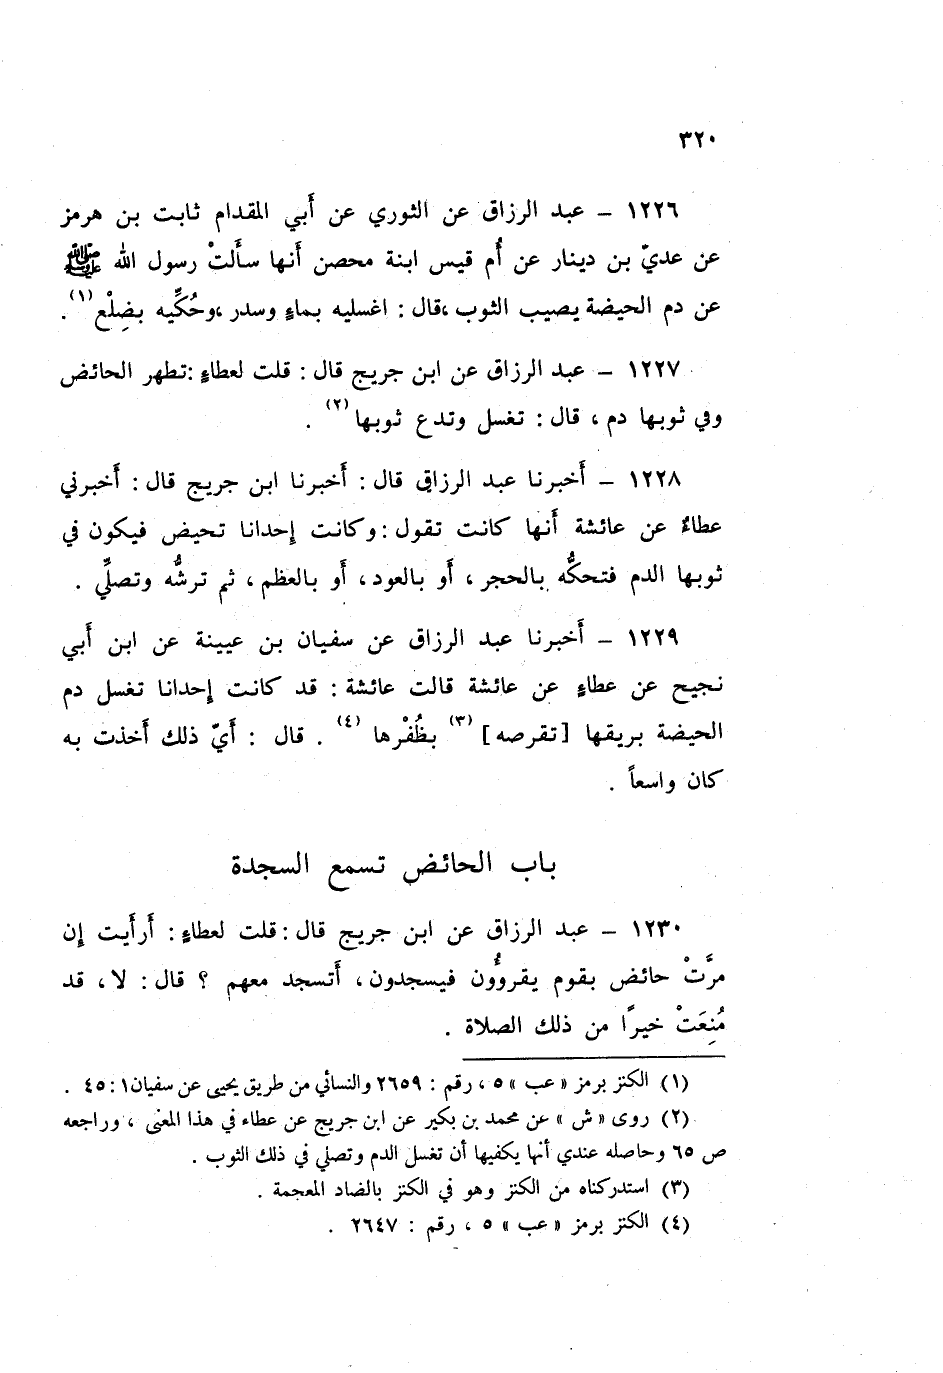 ٣٢٠
١٢٢٦ – عبد الرزاق عن الثوري عن أَبي المقدام ثابت بن هرمز
عن عديّ بن دينار عن أُم قيس ابنة محصن أَنها سأَلتْ رسول الله ﷺ
عن دم الحيضة يصيب الثوب ،قال : اغسليه بماءٍ وسدر ،وحُكِّيه بضِلْع (١) .
١٢٢٧ – عبد الرزاق عن ابن جريج قال : قلت لعطاءٍ :تطهر الحائض
وفي ثوبها دم ، قال : تغسل وتدع ثوبها (٢) .
١٢٢٨ – أَخبرنا عبد الرزاق قال : أَخبرنا ابن جريج قال : أَخبرني
عطاءٌ عن عائشة أَنها كانت تقول : وكانت إِحدانا تحيض فيكون في
ثوبها الدم فتحكُّه بالحجر ، أَو بالعود ، أَو بالعظم ، ثم ترشُّه وتصلِّي .
١٢٢٩ – أَخبرنا عبد الرزاق عن سفيان بن عيينة عن ابن أَبي
نجيح عن عطاءٍ عن عائشة قالت عائشة : قد كانت إِحدانا تغسل دم
الحيضة بريقها [تقرصه] (٣) بظُفْرها (٤) . قال : أَيّ ذلك أَخذت به
كان واسعاً .
باب الحائض تسمع السجدة
١٢٣٠ – عبد الرزاق عن ابن جريج قال : قلت لعطاءٍ : أَرأَيت إِن
مرَّتْ حائض بقوم يقروُّون فيسجدون ، أَتسجد معهم ؟ قال : لا ، قد
مُنِعَتْ خيرًا من ذلك الصلاة .
(١) الكنز برمز «عب» ٥ ، رقم : ٢٦٥٩ والنسائي من طريق يحيى عن سفيان ١ : ٤٥ .
(٢) روى «ش» عن محمد بن بكير عن ابن جريج عن عطاء في هذا المعنى ، وراجعه
ص ٦٥ وحاصله عندي أنها يكفيها أن تغسل الدم وتصلي في ذلك الثوب .
(٣) استدركناه من الكنز وهو في الكنز بالضاد المعجمة .
(٤) الكنز برمز «عب» ٥ ، رقم : ٢٦٤٧ .